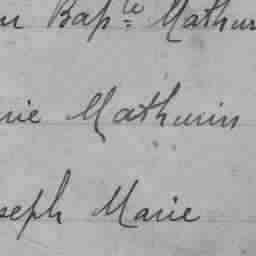 n Bapte Mathur
rie Mathurin
seph Marie